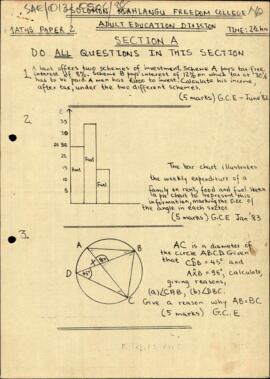 SOLOMON MAHLANGU FREEDOM COLLEGE
ADULT EDUCATION DIVISION
MATHS PAPER 2
TIME: 2½
SECTION A
DO ALL QUESTIONS IN THIS SECTION
1. A bank offers two schemes of investment. Scheme A pays tax-free
interest of 8%. Scheme B pays interest of 12% on which tax at 30%
has to be paid. A man has to invest. Calculate his income
after tax, under the two different schemes.
(5 marks) G.C.E - June 82
2.
Fuel
Fuel
The bar chart illustrates
the weekly expenditure of a
family on rent, food and fuel. Sketch
a pie chart to represent this
information, marking the size of
the angle in each sector.
(5 marks) G.C.E Jan '83
3.
A
B
D
C
X
AC is a diameter of
the circle ABCD. Given
that CD̂B = 45° and
AX̂B = 95°, calculate,
giving reasons,
(a) CÂB, (b) DBC.
Give a reason why AB = BC
(5 marks) G.C.E.